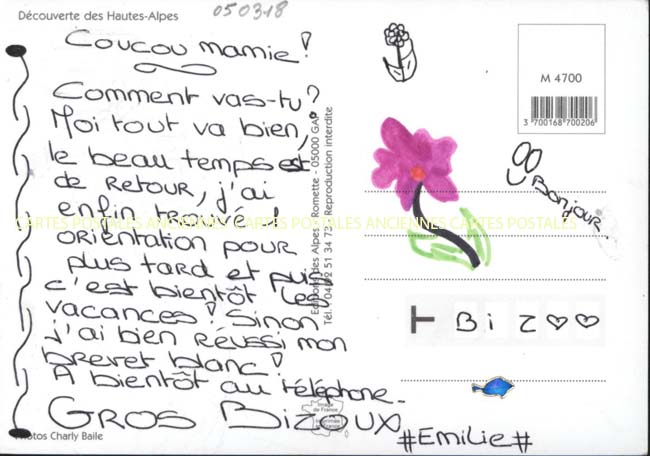 Découverte des Hautes-Alpes
050318
Coucou mamie !
Comment vas-tu ?
Moi tout va bien,
le beau temps est
de retour, j'ai
enfin trouvé l
orientation pour
plus tard et puis
c'est bientôt les
vacances ! Sinon
j'ai bien réussi mon
brevet blanc !
A bientôt au téléphone.
GROS BIZOUX
#EMILIE#
Photos Charly Baile
Editions des Alpes - Romette - 05000 GAP
Tél. 04 92 51 34 73 - Reproduction interdite
M 4700
3 700168 700206
Bonjour
BiZ
CARTES POSTALES ANCIENNES CARTES POSTALES ANCIENNES CARTES POSTALES
Image
de France